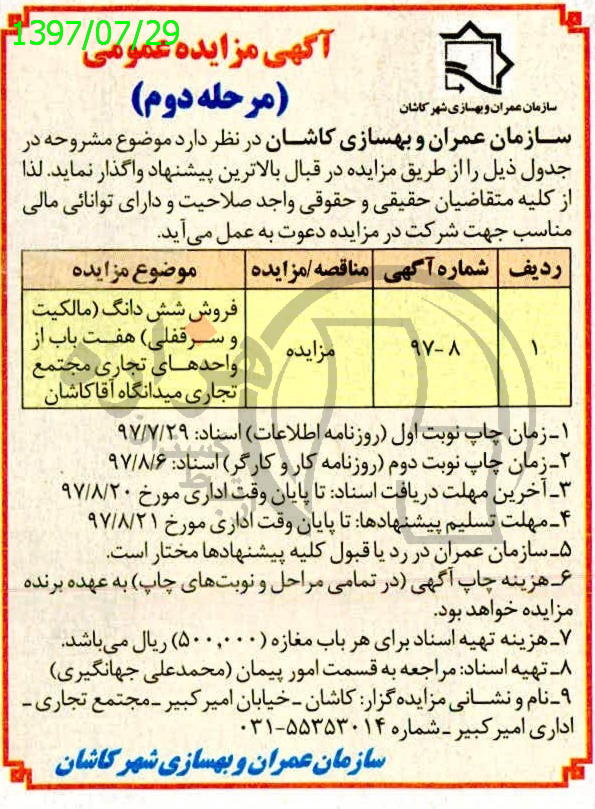 1397/07/29
آگهی مزایده عمومی
(مرحله دوم)
سازمان عمران وبهسازی شهر کاشان
سازمان عمران و بهسازی کاشان در نظر دارد موضوع مشروحه در
جدول ذیل را از طریق مزایده در قبال بالاترین پیشنهاد واگذار نماید. لذا
از کلیه متقاضیان حقیقی و حقوقی واجد صلاحیت و دارای توانائی مالی
مناسب جهت شرکت در مزایده دعوت به عمل می‌آید.
ردیف شماره آگهی مناقصه/مزایده موضوع مزایده
۱ ۹۷-۸ مزایده فروش شش دانگ (مالکیت
و سرقفلی) هفت باب از
واحدهای تجاری مجتمع
تجاری میدانگاه آقاکاشان
۱ـ زمان چاپ نوبت اول (روزنامه اطلاعات) اسناد: ۹۷/۷/۲۹
۲ـ زمان چاپ نوبت دوم (روزنامه کار و کارگر) اسناد: ۹۷/۸/۶
۳ـ آخرین مهلت دریافت اسناد: تا پایان وقت اداری مورخ ۹۷/۸/۲۰
۴ـ مهلت تسلیم پیشنهادها: تا پایان وقت اداری مورخ ۹۷/۸/۲۱
۵ـ سازمان عمران در رد یا قبول کلیه پیشنهادها مختار است.
۶ـ هزینه چاپ آگهی (در تمامی مراحل و نوبت‌های چاپ) به عهده برنده
مزایده خواهد بود.
۷ـ هزینه تهیه اسناد برای هر باب مغازه (۵۰۰,۰۰۰) ریال می‌باشد.
۸ـ تهیه اسناد: مراجعه به قسمت امور پیمان (محمدعلی جهانگیری)
۹ـ نام و نشانی مزایده‌گزار: کاشان ـ خیابان امیرکبیر ـ مجتمع تجاری ـ
اداری امیرکبیر ـ شماره ۵۵۳۵۳۰۱۴-۰۳۱
سازمان عمران و بهسازی شهر کاشان